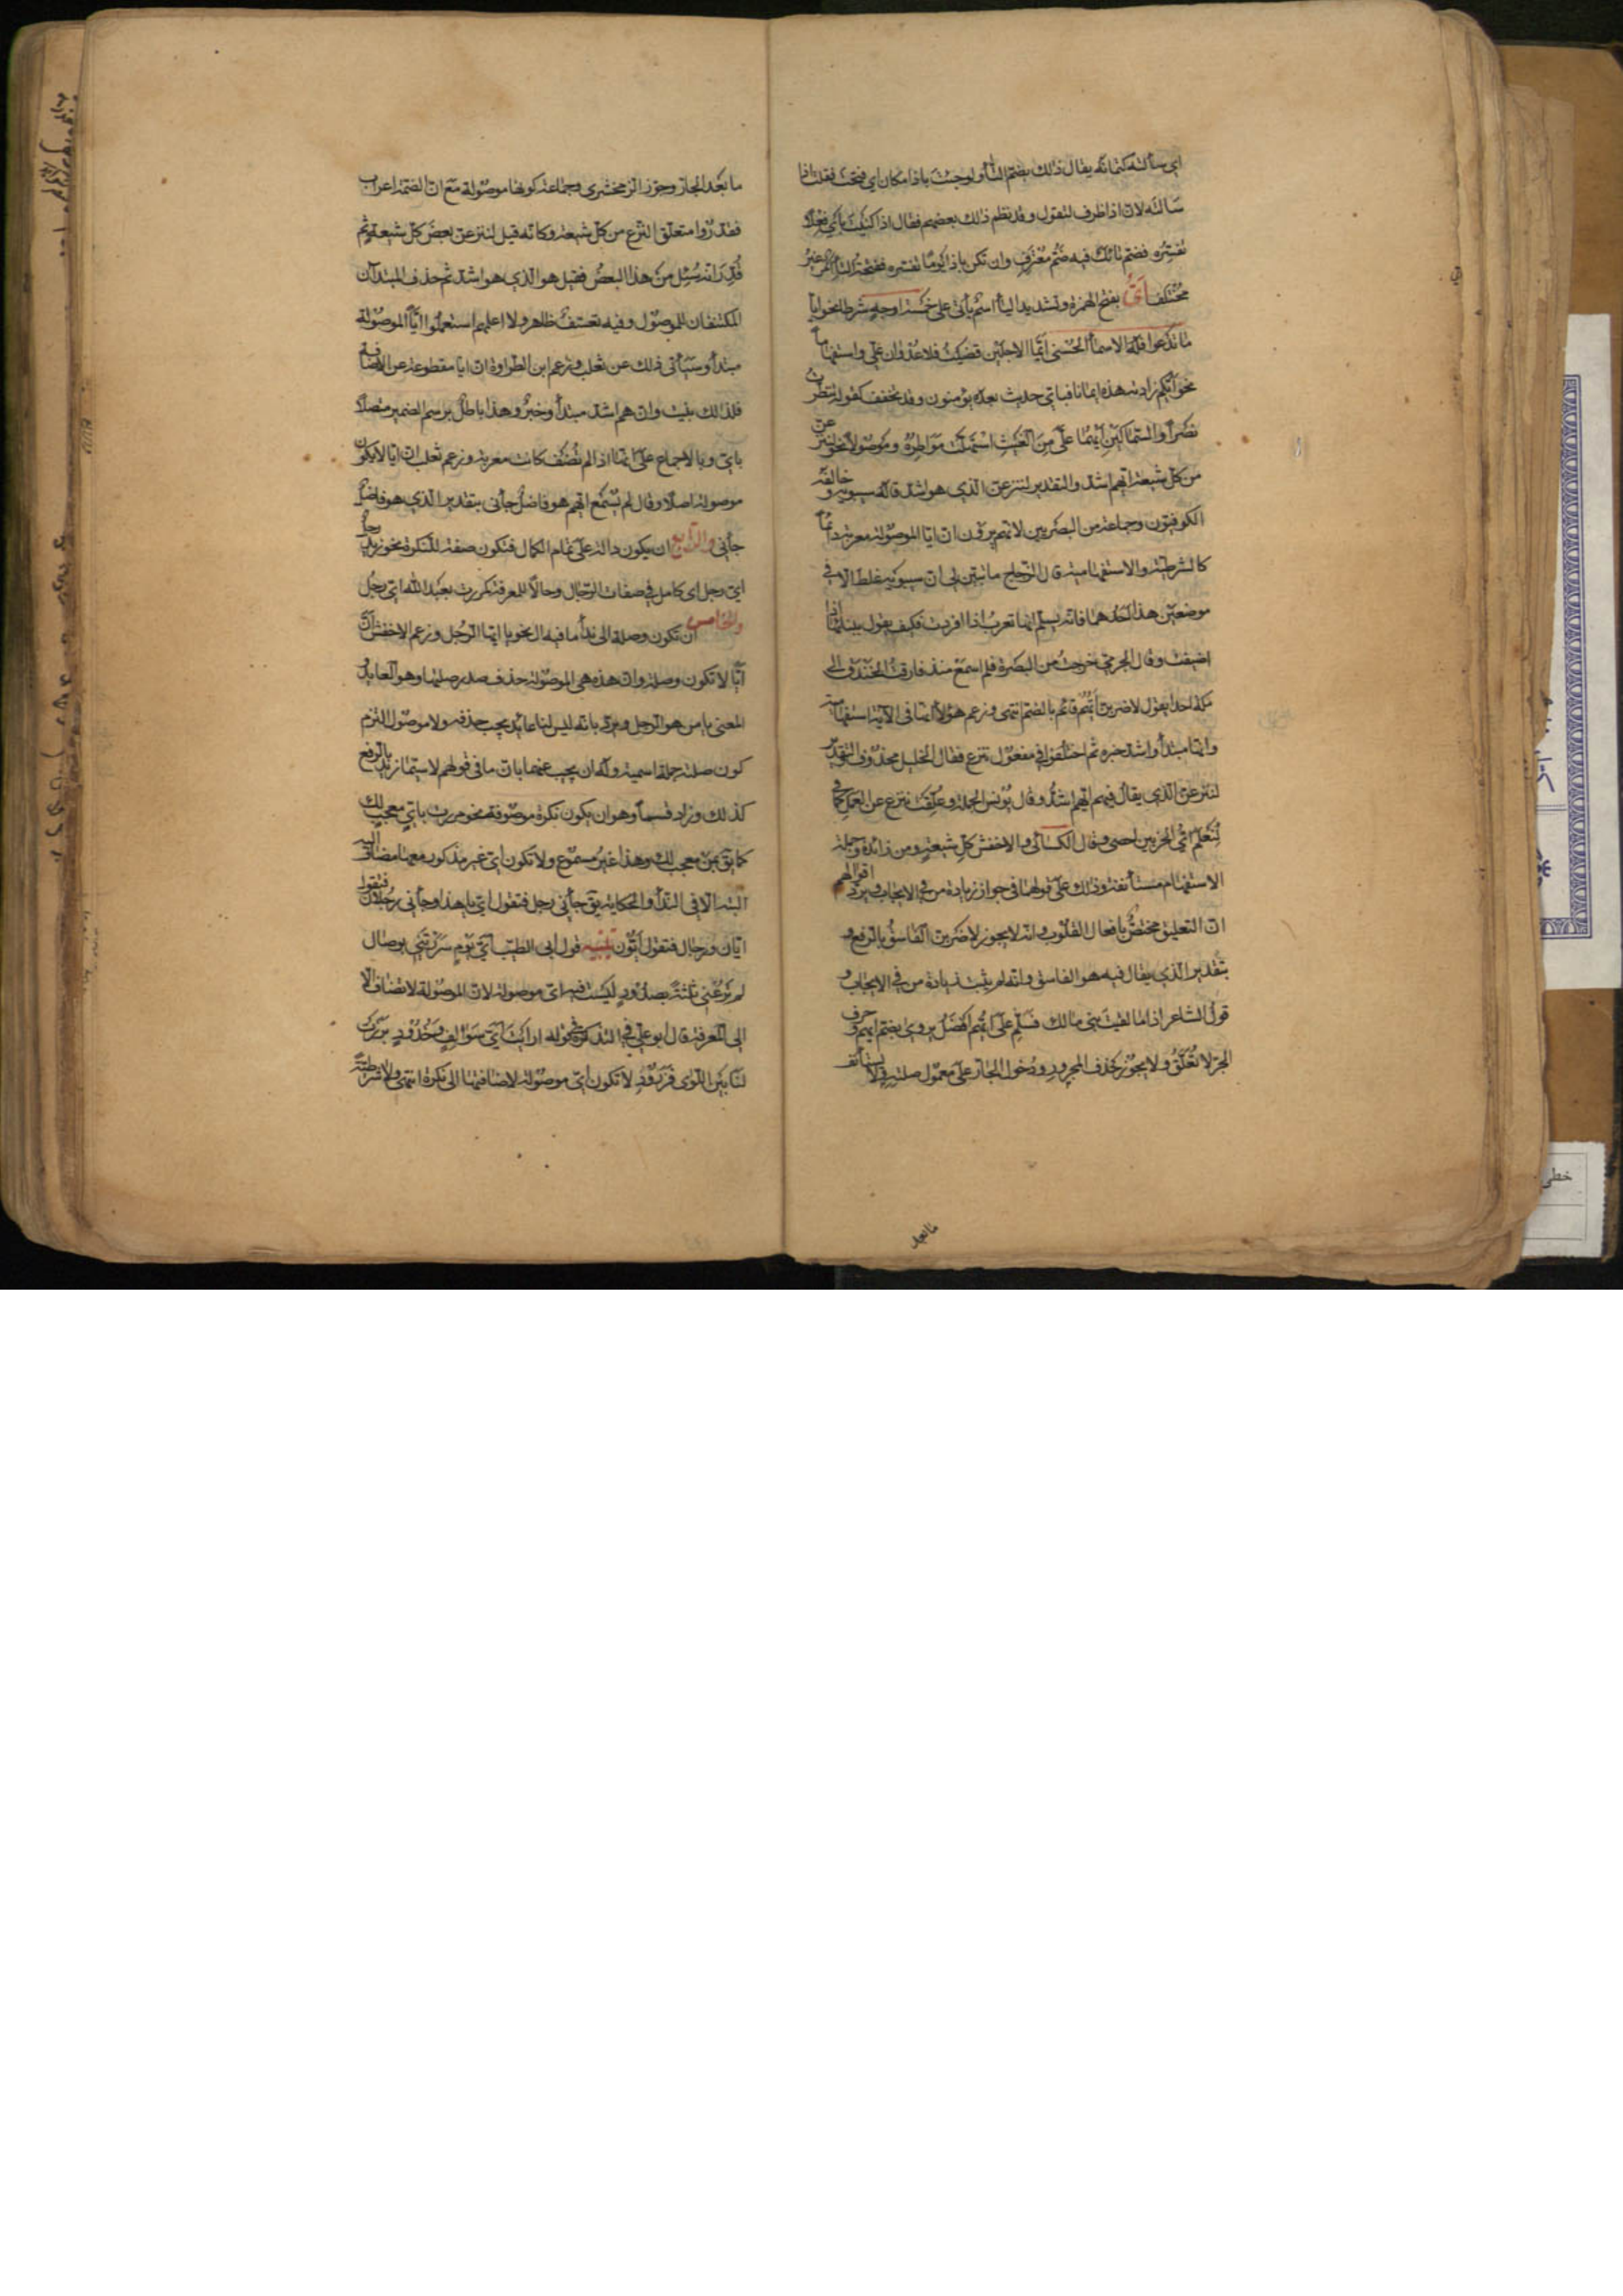 اي سألته كتمانه يقال ذلك بضم التاء ولو جئت باذا مكان اي فتحت فقلت اذا
سالته لان اذا ظرف لتقول وقد نظم ذلك بعضهم فقال اذا كنيت باي فعلا
تفسره فضم تائك فيه ضم معترف وان تكن باذا يوما تفسره ففتحة التاء امر غير
مختلف أيّ بفتح الهمزة وتشديد اليا اسم يأتى على خمسة اوجه شرطا نحو ايا
ما تدعوا فله الاسماء الحسنى ايّما الاجلين قضيت فلا عدوان علي واستفهاما
نحو ايكم زادته هذه ايمانا فباي حديث بعده يؤمنون وقد تخفف كقوله تنظرت
نصرا والسماكين ايهما علىّ من الغيث استهلت مواطره وموصولا نحو لننزعن
من كل شيعة ايهم اشد والتقدير لننزعن الذي هو اشد قاله سيبويه وخالفه
الكوفيون وجماعة من البصريين لانهم يرون ان ايا الموصولة معربة دائما
كالشرطية والاستفهامية قال الزجاج ما تبين لي ان سيبويه غلط الا في
موضعين هذا احدهما فانه يسلم انها تعرب اذا افردت فكيف يقول ببنائها اذا
اضيفت وقال الجرمي خرجت من البصرة فلم اسمع منذ فارقت الخندق الى
مكة احدا يقول لاضربن ايهم قائم بالضم انتهى وزعم هؤلاء انها فى الآية استفهامية
وانها مبتدأ واشد خبره ثم اختلفوا في مفعول ننزع فقال الخليل محذوف التقدير
لننزعن الذي يقال فيهم ايهم اشد وقال يونس الجملة وعلقت ننزع عن العمل كما في
لنعلم اي الحزبين احصى وقال الكسائي والاخفش كل شيعة ومن زائدة وجملة
الاستفهام مستأنفة وذلك على قولهما في جواز زيادة من في الايجاب ويرد اقوالهم
ان التعليق مختص بافعال القلوب وانه لا يجوز لاضربن الفاسق بالرفع و
بتقدير الذي يقال فيه هو الفاسق وانه لم يثبت زيادة من في الايجاب و
قول الشاعر اذا ما لقيت بنى مالك فسلم على ايهم افضل يروى بضم ايهم وحرف
الجر لا تعلق ولا يجوز حذف المجرور ودخول الجار على معمول صلته ولا يستأنف
ما بعد
ما بعد الجار وجوز الزمخشرى وجماعة كونها موصولة مع ان الضمة اعراب
فقدروا متعلق النزع من كل شيعة وكانه قيل لننزعن بعض كل شيعة ثم
قدر انه سئل من هذا البعض فقيل هو الذي هو اشد ثم حذف المبتدآن
المكتنفان للموصول وفيه تعسف ظاهر ولا اعلمهم استعملوا ايا الموصولة
مبتدأ وسيأتى ذلك عن ثعلب وزعم ابن الطراوة ان ايا مقطوعة عن الاضافة
فلذلك بنيت وان هم اشد مبتدأ وخبر وهذا باطل برسم الضمير متصلا
باي وبالاجماع على انها اذا لم تضف كانت معربة وزعم ثعلب ان ايا لا يكون
موصولة اصلا وقال لم يسمع ايهم هو فاضل جاءنى بتقدير الذي هو فاضل
جاءنى والرابع ان يكون دالة على تمام الكمال فتكون صفة للنكرة نحو زيد رجل
اي رجل اى كامل في صفات الرجال وحالا للمعرفة كمررت بعبد الله اي رجل
والخامس ان تكون وصلة الى نداء ما فيه ال نحو يا ايها الرجل وزعم الاخفش ان
ايا لا تكون وصلة وان هذه هي الموصولة حذف صدر صلتها وهو العايد و
المعنى يا من هو الرجل ويرد بانه ليس لنا عايد يجب حذفه ولا موصول التزم
كون صلته جملة اسمية وله ان يجيب عنهما بان ما فى قولهم لا سيما زيد بالرفع
كذلك وزاد قسما وهو ان يكون نكرة موصوفة نحو مررت باي معجب لك
كما يق بمن معجب لك وهذا غير مسموع ولا تكون اي غير مذكور معها مضاف اليه
البتة الا فى النداء والحكاية يق جاءنى رجل فتقول اي يا هذا وجاءنى رجلان فتقول
ايان ورجال فتقول ايون تنبيه قول ابى الطيب اي يوم سررتنى بوصال
لم ترعنى ثلثة بصدود ليست فيه اى موصولة لان الموصولة لا تضاف الا
الى المعرفة قال ابو علي في التذكرة في قوله ارايت اي سوالف وخدود برزت
لنا بين اللوى فزرود لا تكون اي موصولة لاضافتها الى نكرة انتهى ولا شرطية
خطى